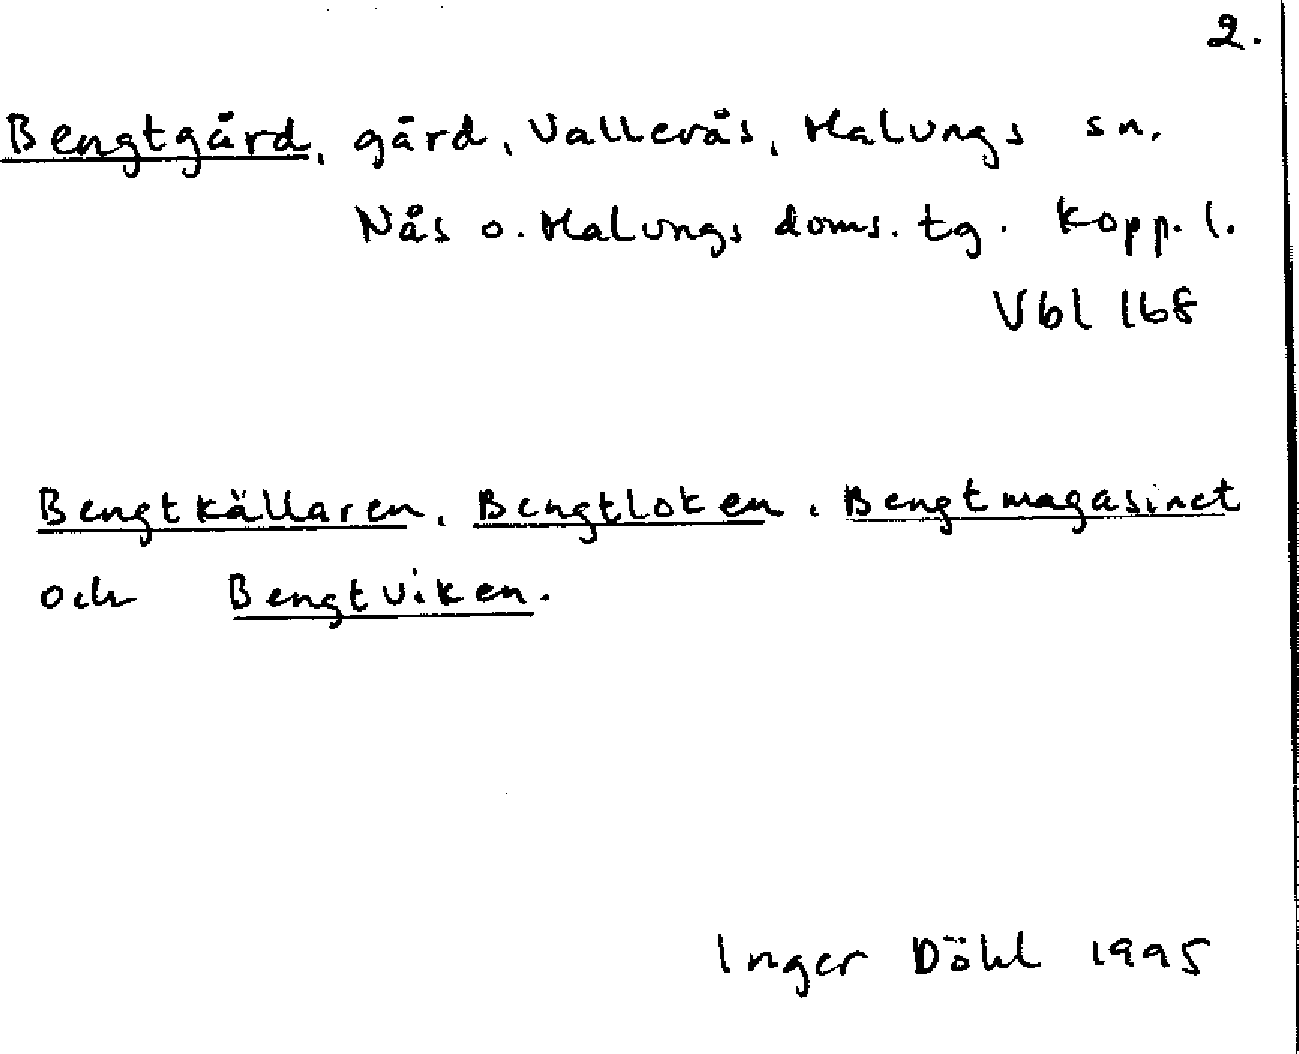 2.
Bengtgård, gård, Vallerås, Malungs sn,
Nås o. Malungs doms. tg. Kopp. l.
Vbl 168
Bengtkällaren, Bengtloken, Bengtmagasinet
och Bengtviken.
Inger Döhl 1995